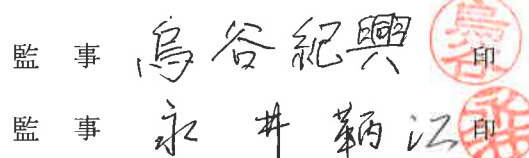 監事 鳥谷紀興 印
監事 永井鞆江 印